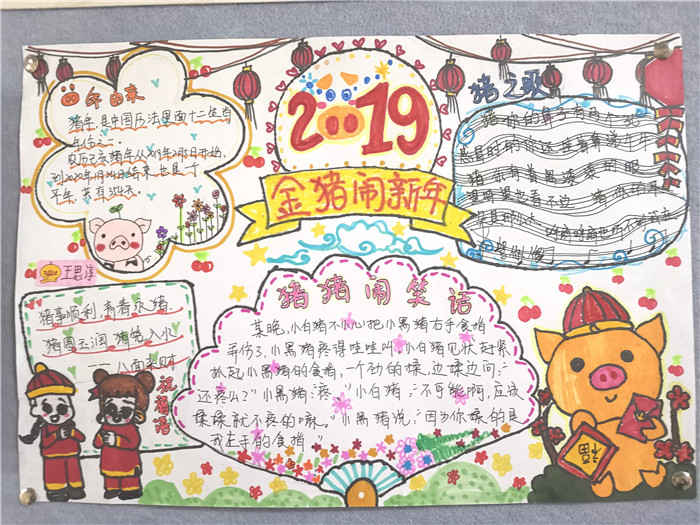 年的来
猪年，是中国历法里面十二生肖
年份之一。
农历己亥猪年从2019年2月5日开始，
到2020年1月24日结束，也是一个
平年，共有354天。
2019
金猪闹新年
猪之歌
猪 你的鼻子有两个孔
感冒时的你还挂着鼻涕牛牛
猪 你有着黑漆漆的眼
望呀望呀也看不到边 猪 你的耳
王思淳
猪事顺利 青春永猪
猪圆玉润 猪笼入水
——八面来财
祝福语
猪猪闹笑话
某晚，小白猪不小心把小黑猪右手食指
弄伤了，小黑猪疼得哇哇叫。小白猪见状赶紧
扒起小黑猪的食指，一个劲的揉，边揉边问：“
还疼么？”小黑猪：“疼。”小白猪：“不可能啊，应该
揉揉就不疼的嘛。”小黑猪说：“因为你揉的是
我左手的食指。”
福